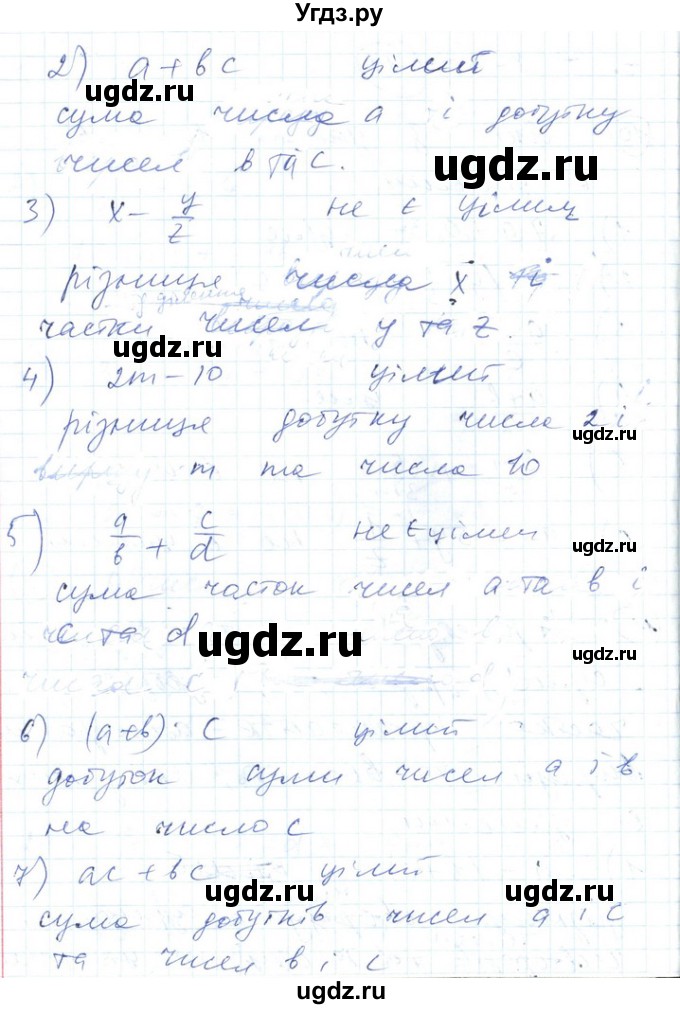 Угдз.ру
2) a + bc цілий
ugdz.ru
сума числа a і добутку
ugdz.ru
чисел b та c.
3) x - y/z не є цілим
різниця числа x і
частки чисел y та z.
ugdz.ru
4) 2m - 10 цілий
різниця добутку числа 2 і
ugdz.ru
m та числа 10
5) a/b + c/d не є цілим
ugdz.ru
сума часток чисел a та b і
c та d
ugdz.ru
ugdz.ru
6) (a+b) · c цілий
добуток суми чисел a і b
на число c
7) ac + bc цілий
ugdz.ru
ugdz.ru
сума добутків чисел a і c
та чисел b і c
ugdz.ru
ugdz.ru